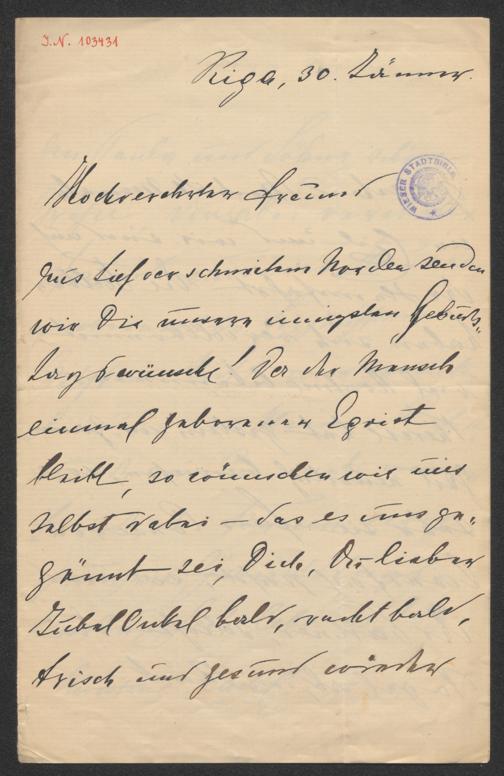 J.N. 103431
Riga, 30. Jänner.
WIENER STADTBIBL
Hochverehrter Freund
Aus tief verschneitem Norden senden
wir Dir unsere innigsten Geburts-
tagswünsche! Da der Mensch
einmal geborener Egoist
bleibt, so wünschen wir uns
selbst dabei – das es uns ge-
gönnt sei, Dich, Du lieber
Jubel Onkel bald, recht bald,
frisch und gesund wieder